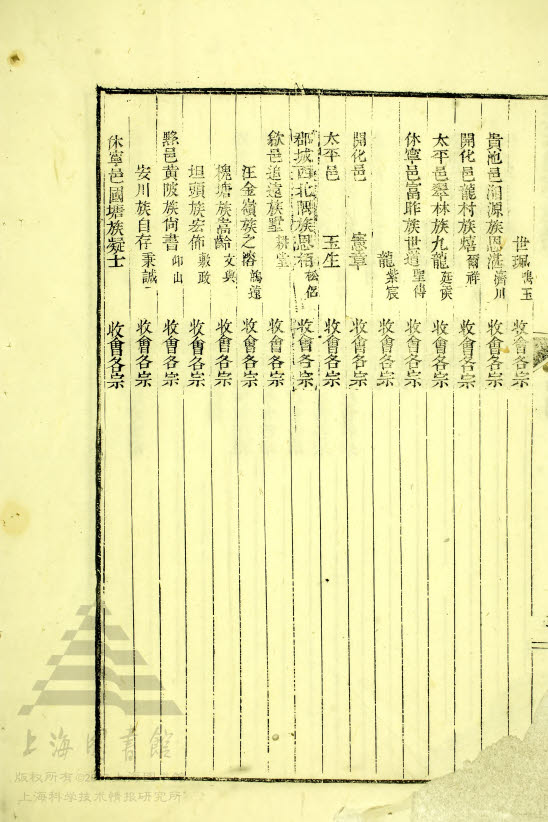 世珮雋玉 收會各宗
貴池邑源族恩湛濟川 收會各宗
開化邑龍村族熺爾祥 收會各宗
太平邑翠林族九龍廷 收會各宗
休寧邑富昨族世道聖傳 收會各宗
龍紫宸 收會各宗
開化邑 憲章 收會各宗
太平邑 玉生 收會各宗
郡城西北隅族恩梧松侶 收會各宗
歙邑追遠族墅耕堂 收會各宗
汪金嶺族之溶鴻遠 收會各宗
槐塘族嵩齡文奐 收會各宗
坦頭族宏佈敷政 收會各宗
黟邑黃陂族尚書仰山 收會各宗
安川族自存秉誠 收會各宗
休寧邑國塘族凝士 收會各宗
上海图書館
版权所有©
上海科学技术情报研究所